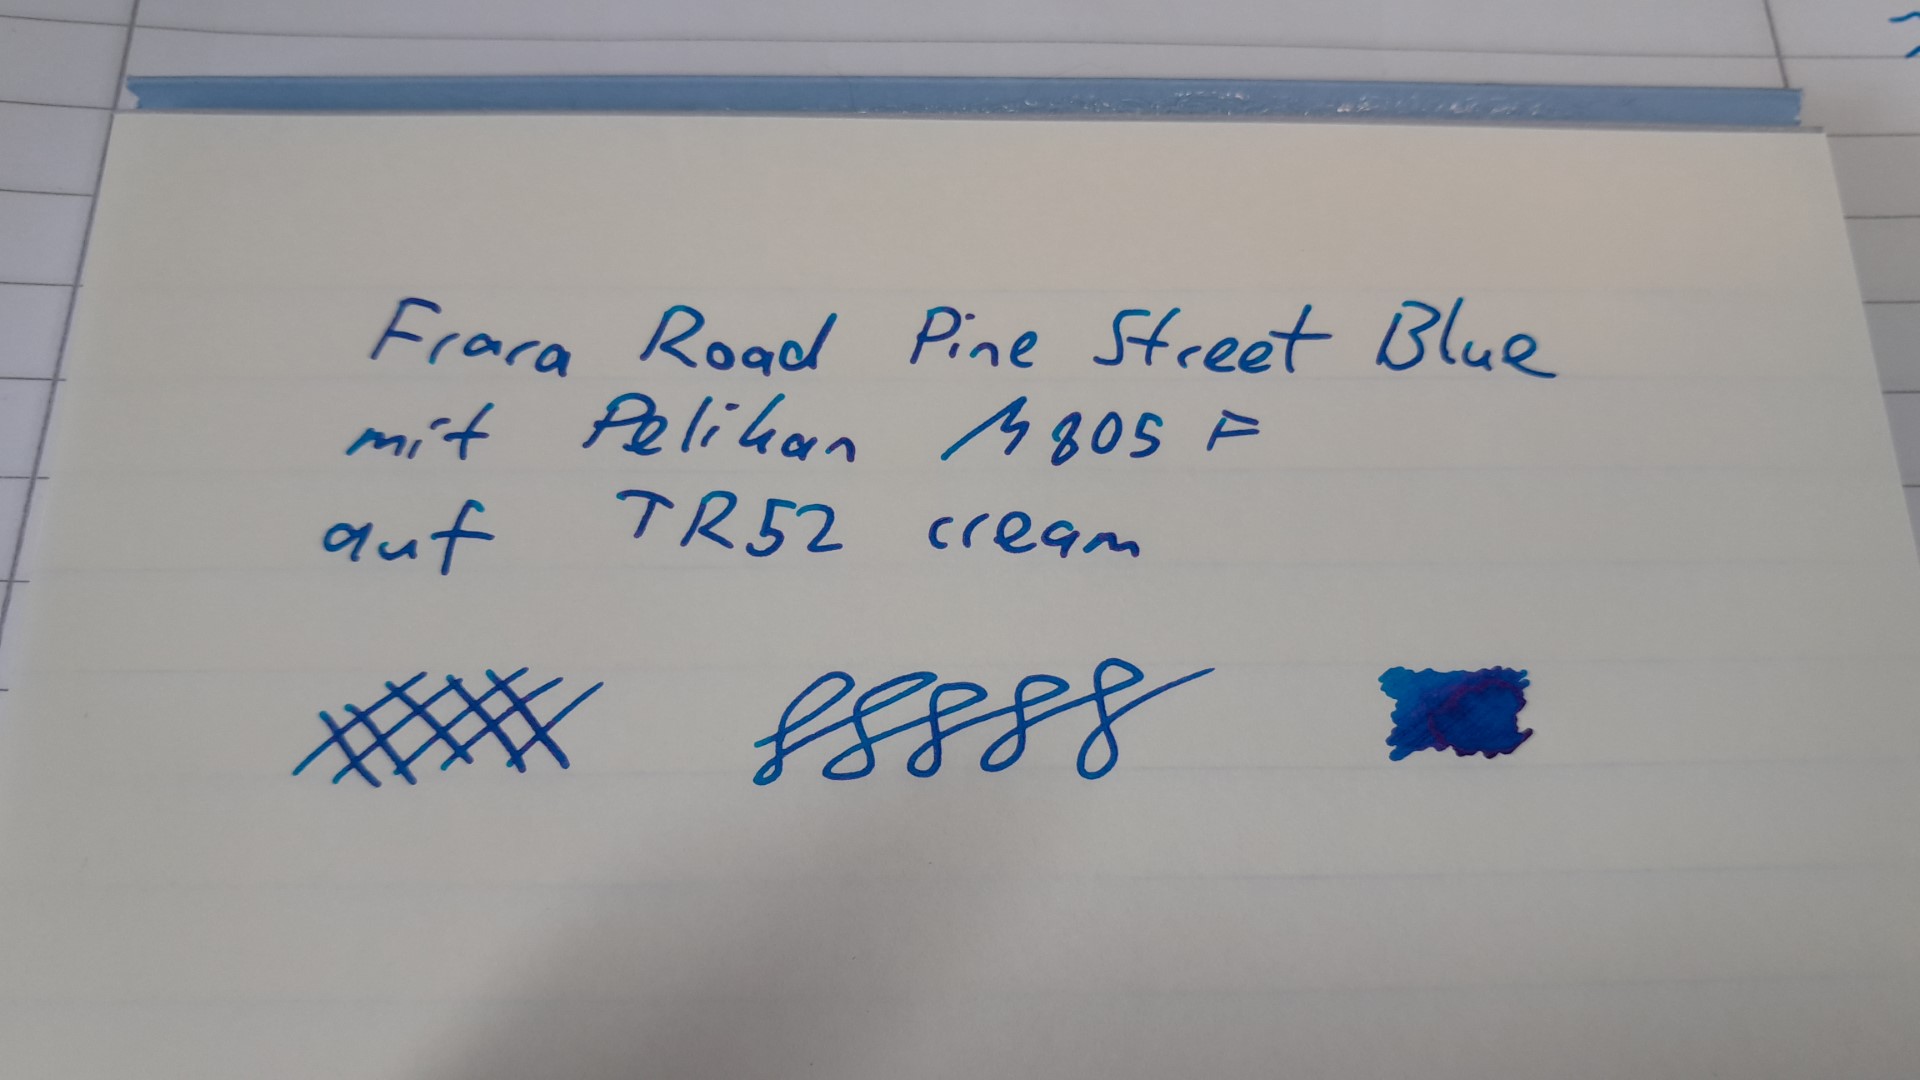 Frara Road Pine Street Blue
mit Pelikan M805 F
auf TR52 cream